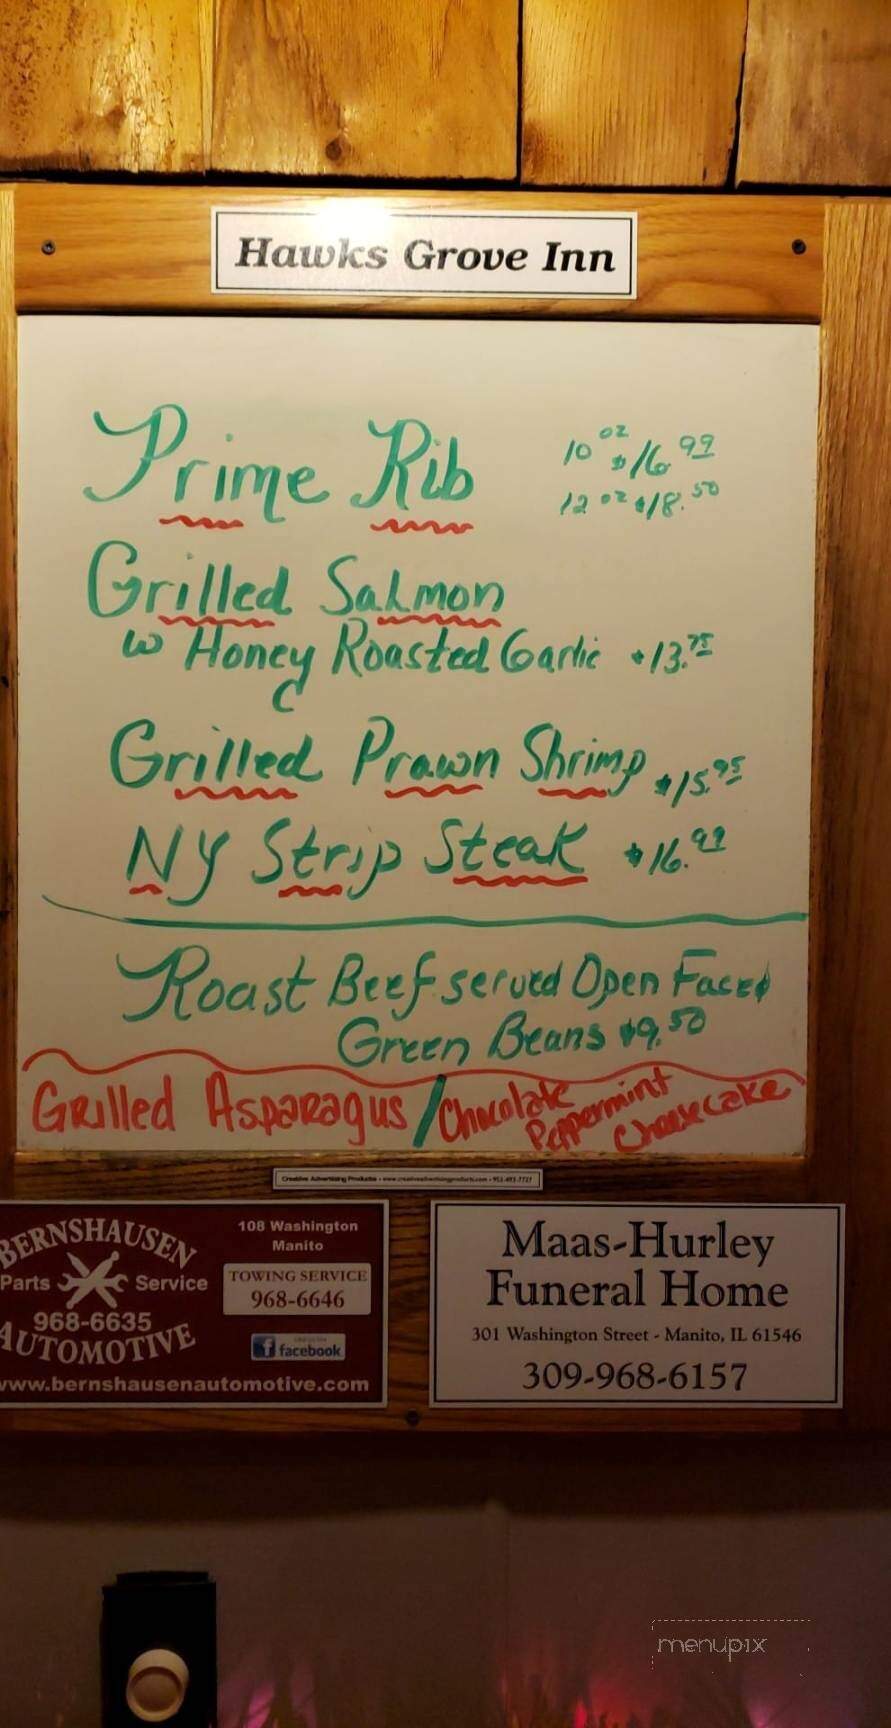 Hawks Grove Inn
Prime Rib 10 oz $16.99
12 oz $18.50
Grilled Salmon
w Honey Roasted Garlic $13.75
Grilled Prawn Shrimp $15.95
NY Strip Steak $16.99
Roast Beef served Open Faced
Green Beans $9.50
Grilled Asparagus / Chocolate
Peppermint
Cheesecake
Creative Advertising Products • www.creativeadvertisingproducts.com • 952-493-7727
BERNSHAUSEN
Parts Service
968-6635
AUTOMOTIVE
108 Washington
Manito
TOWING SERVICE
968-6646
facebook
www.bernshausenautomotive.com
Maas-Hurley
Funeral Home
301 Washington Street - Manito, IL 61546
309-968-6157
menupix